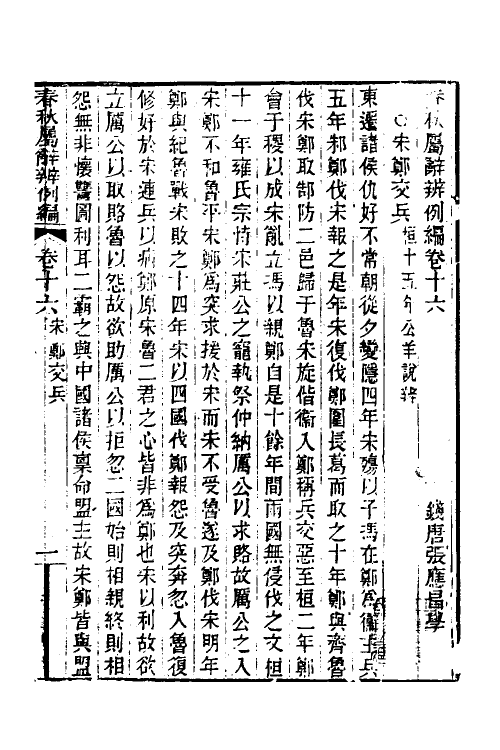 春秋屬辭辨例編卷十六
錢唐張應昌學
○宋鄭交兵 桓十五年公羊說辨
東遷諸侯仇好不常朝從夕變隱四年宋殤以子馮在鄭爲衞主兵
五年邾鄭伐宋報之是年宋復伐鄭圍長葛而取之十年鄭與齊魯
伐宋鄭取郜防二邑歸于魯宋旋偕衞入鄭稱兵交惡至桓二年鄭
會于稷以成宋亂立馮以親鄭自是十餘年間兩國無侵伐之文桓
十一年雍氏宗恃宋莊公之寵執祭仲納厲公以求賂故厲公之入
宋鄭不和魯平宋鄭爲突求援於宋而宋不受魯遂及鄭伐宋明年
鄭與紀魯戰宋敗之十四年宋以四國伐鄭報怨及突奔忽入魯復
修好於宋連兵以病鄭原宋魯二君之心皆非爲鄭也宋以利故欲
立厲公以取賂魯以怨故欲助厲公以拒忽二國始則相親終則相
怨無非懷讐圖利耳二霸之興中國諸侯稟命盟主故宋鄭皆與盟
春秋屬辭辨例編 卷十六 宋鄭交兵 一